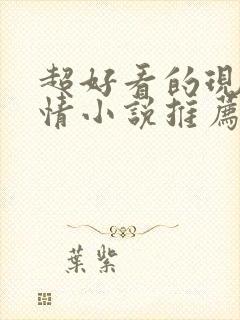 超好看的現
情小說推薦
葉紫